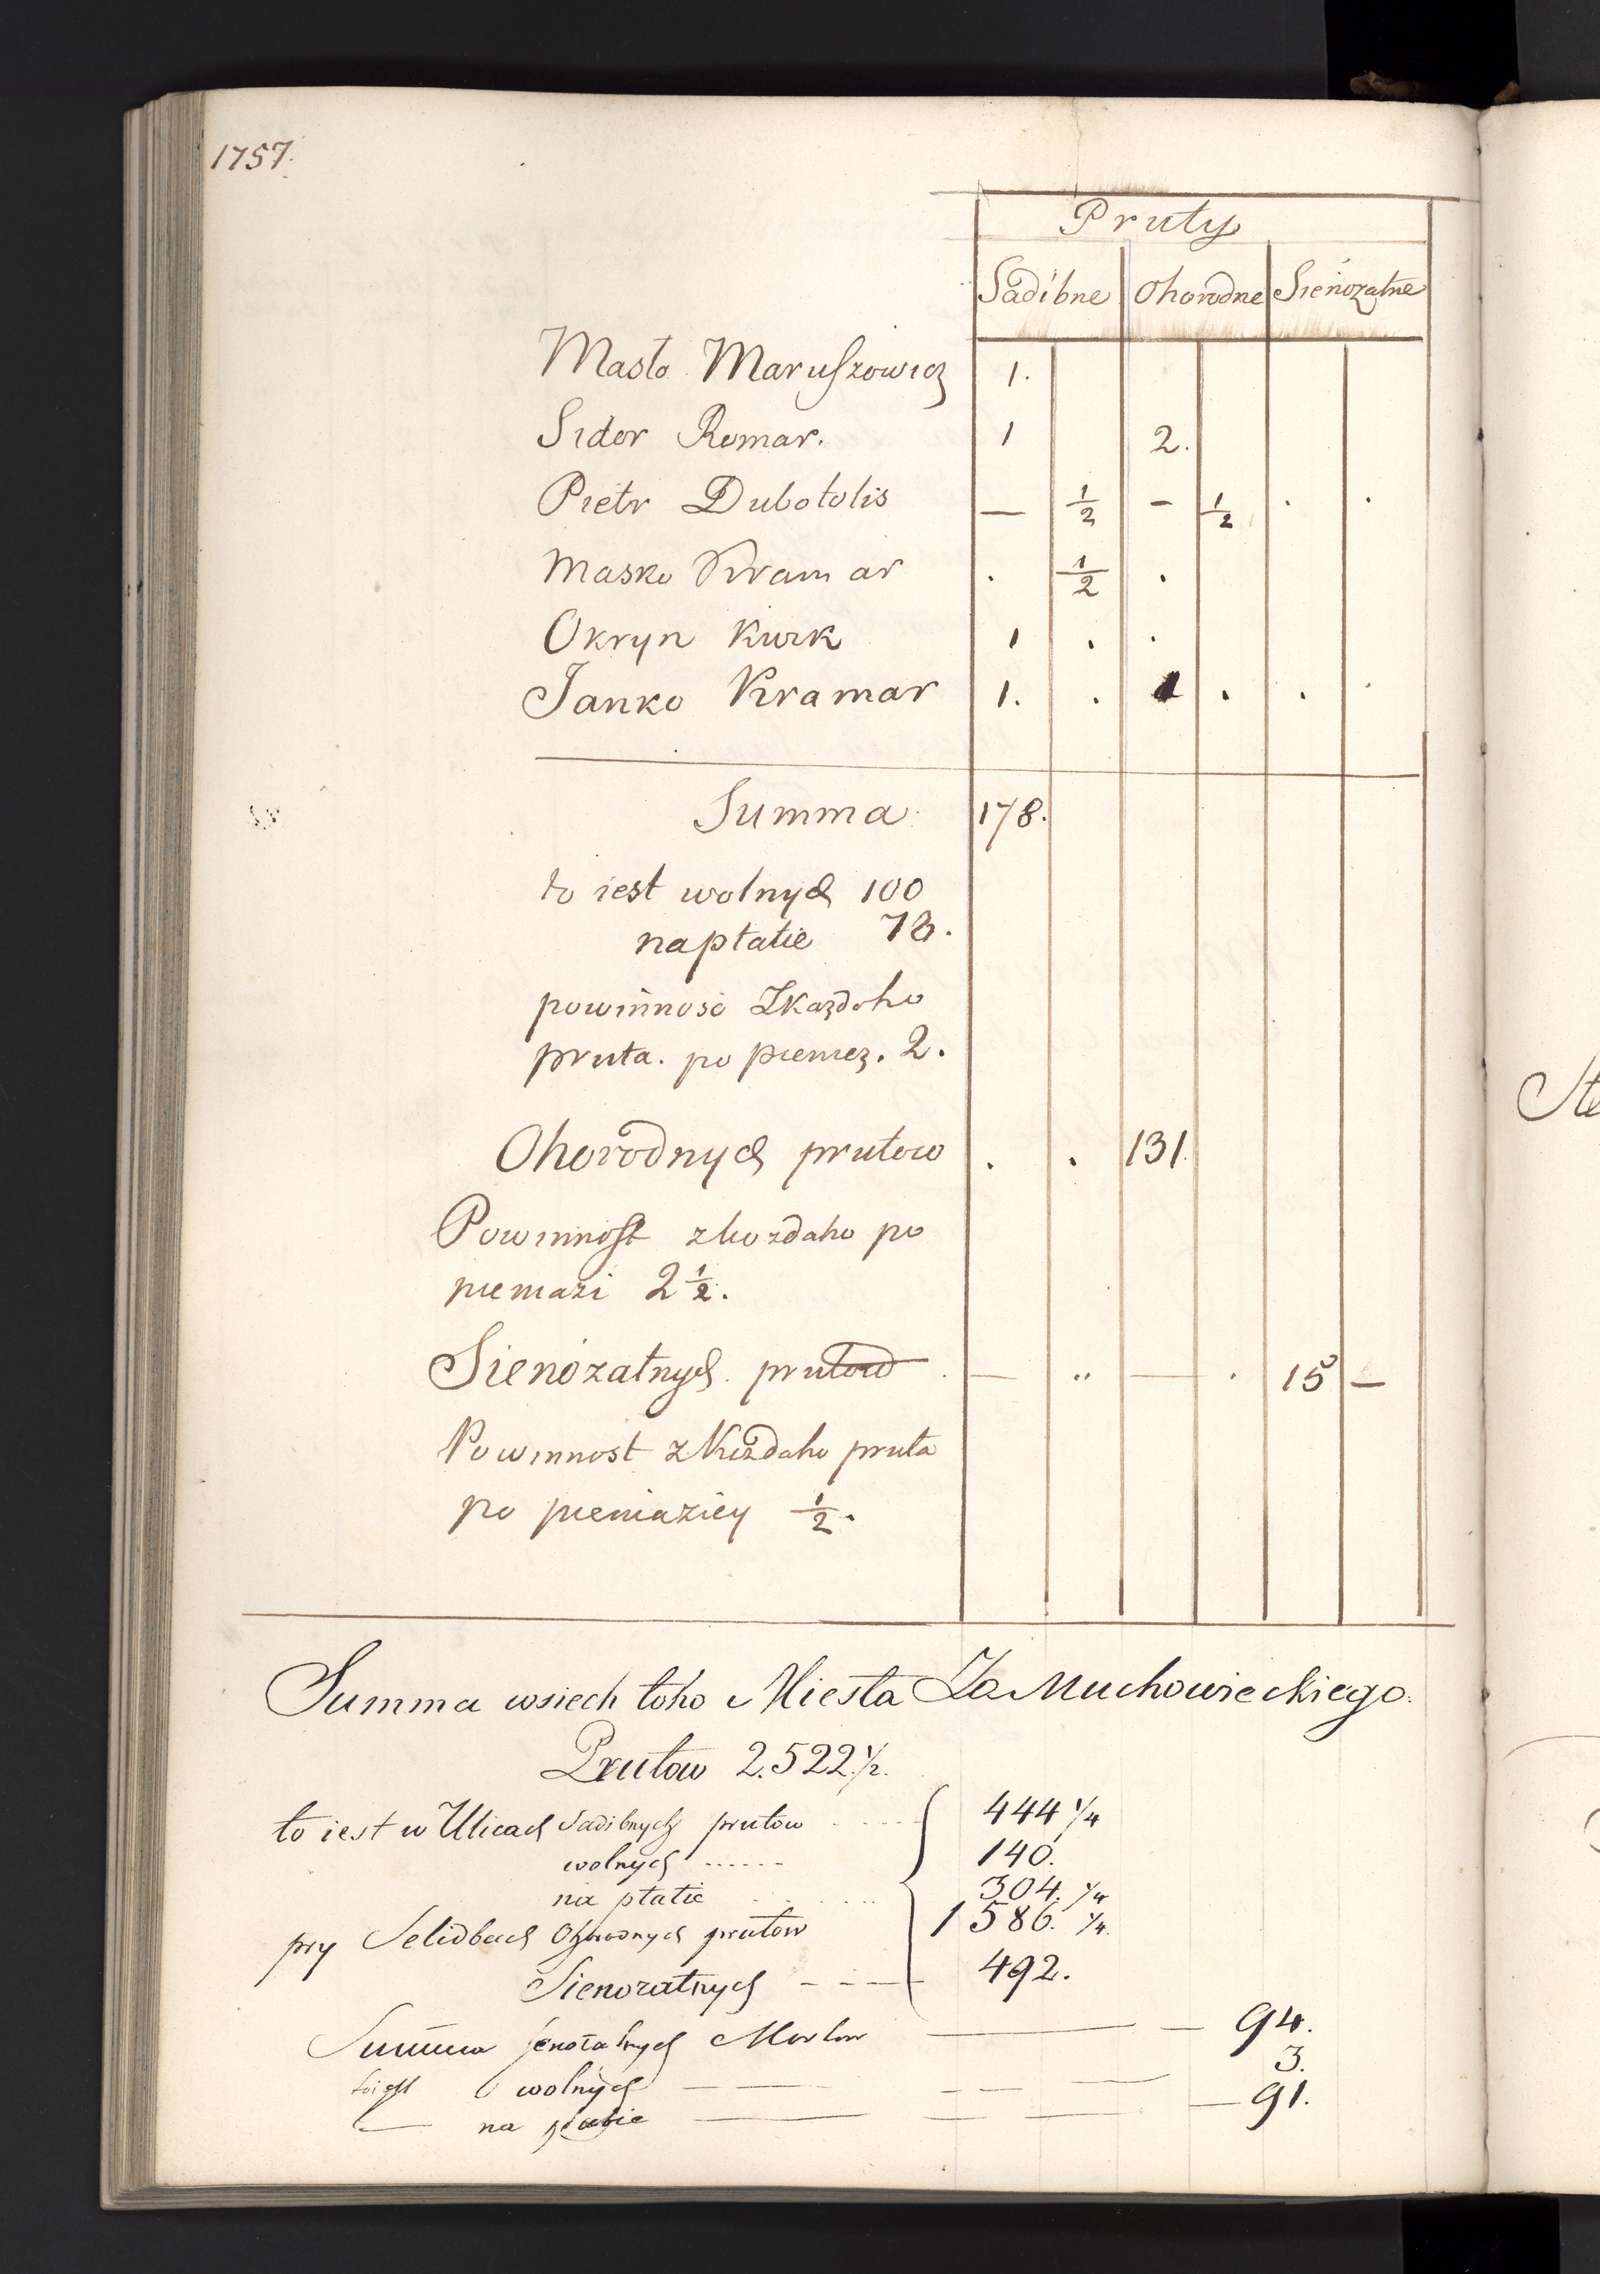 1757.
Pruty
Sadibne Ohorodne Sienozatne
Masło Maruszowicz 1.
Sidor Romar. 1 2.
Pietr Dubotolis — 1/2 – 1/2 . .
Masko Kramar . 1/2 .
Okryn Kurk 1 . .
Janko Kramar 1. . 1 . . .
Summa 178.
to iest wolnych 100
na płatie 78.
powinnosc Zkazdoho
pruta. po pieniez. 2.
Ohorodnych prutow . . 131
Powinnost zkozdaho po
pieniazi 2 1/2.
Sienozatnych prutow . — .. — . 15 —
Powinnost z Kozdaho pruta
po pieniaziey 1/2.
Summa wsiech toho Miesta Za Muchowieckiego.
Prutow 2.522 1/2.
to iest w Ulicach Sadibnych prutow 444 1/4
wolnych ...... 140.
na płatie 304. 1/4
pry Selidbach Ohorodnych prutow 1586. 1/4.
Sienozatnych — – — 492.
Summa senozatnych Morhow — — 94.
to iest wolnych — — — — 3.
— na płatie — — — — 91.
Ste